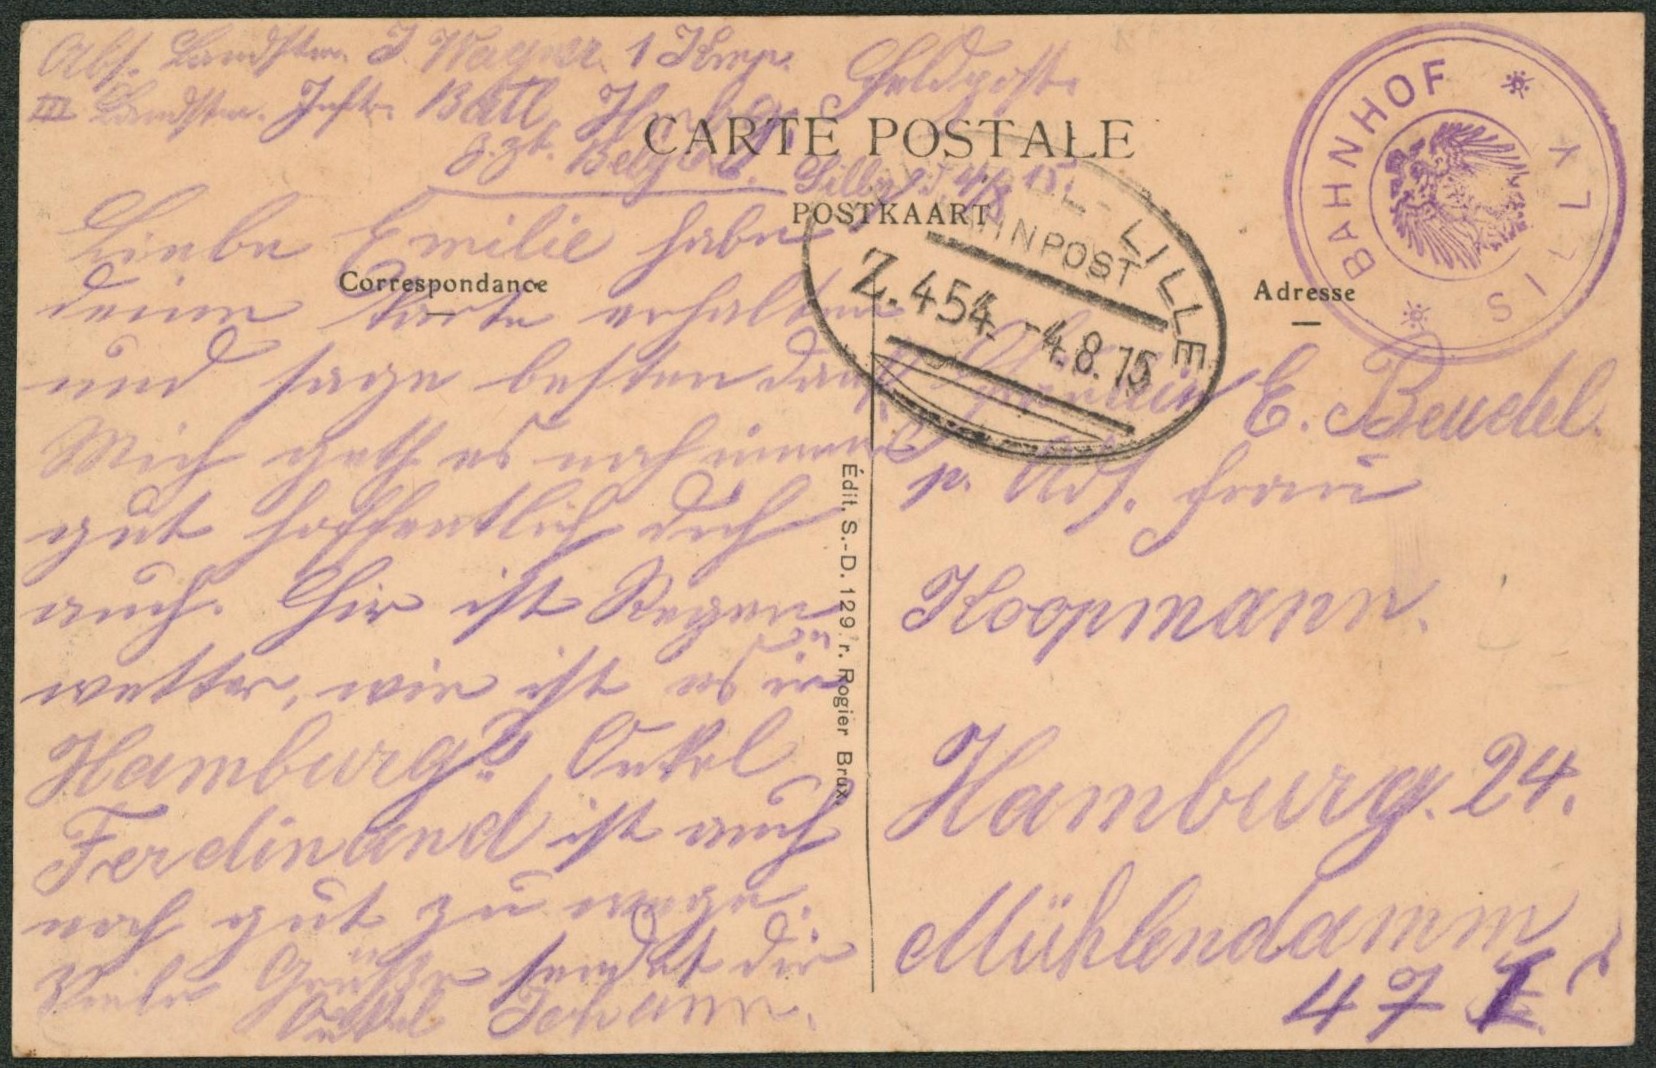 Abs. Landstm. J. Wagner. 1 Komp.
III Landstm. Inft. Batl. Hambg.
z. Zt. Belgien.
Feldpost.
Silly, d. 4/8 15.
CARTE POSTALE
POSTKAART
Correspondance
Adresse
BAHNHOF * SILLY *
LILLE
BAHNPOST
Z. 454. -4.8.15
Liebe Emilie habe
deine Karte erhalten
und sage besten dank
Mich geth es noch immer
gut hoffentlich dich
auch. Hir ist Regen
wetter, wie ist es in
Hamburg? Onkel
Ferdinand ist auch
noch gut zu wege.
Viele Grüße sendet dir
Onkel Johann.
Édit. S.-D. 129, r. Rogier Brux.
Fräulein E. Beudel.
p. Ads. Frau
Koopmann.
Hamburg. 24.
Mühlendamm
47 I